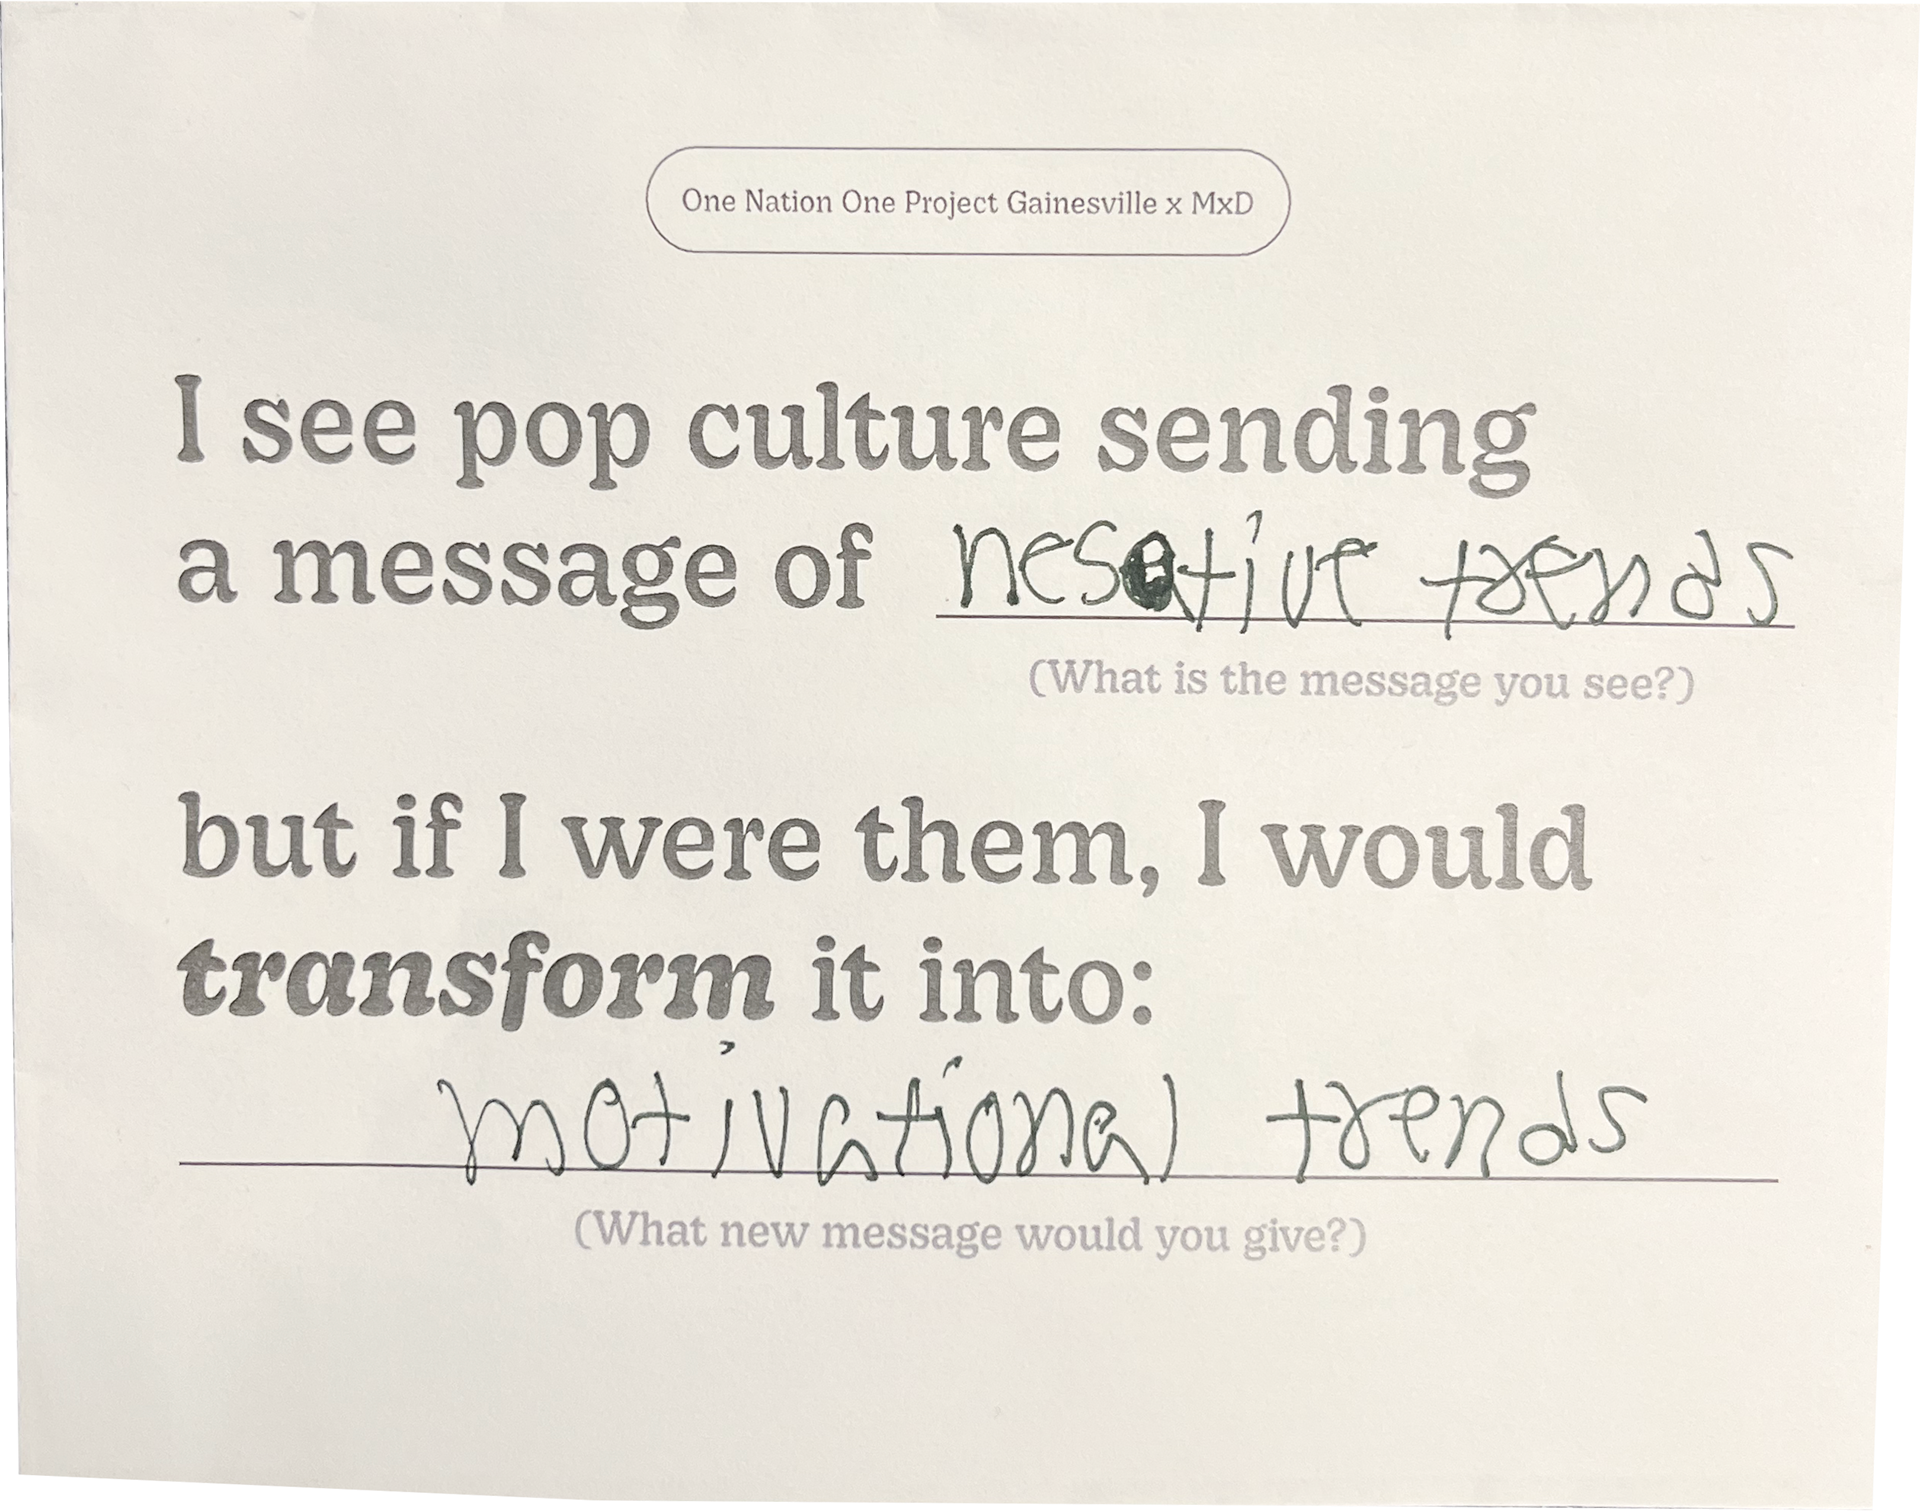 One Nation One Project Gainesville x MxD
I see pop culture sending
a message of negative trends
(What is the message you see?)
but if I were them, I would
transform it into:
motivational trends
(What new message would you give?)